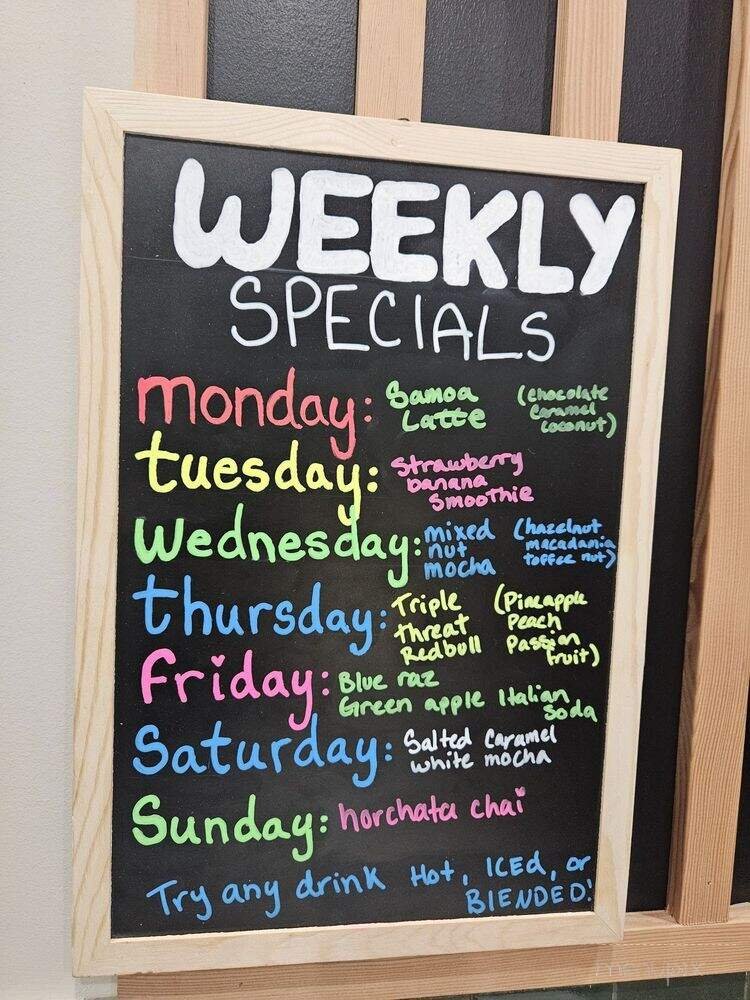 WEEKLY
SPECIALS
monday: Samoa Latte (chocolate caramel coconut)
tuesday: Strawberry banana Smoothie
Wednesday: mixed nut mocha (hazelnut macadamia toffee nut)
thursday: Triple threat Redbull (Pineapple Peach Passion fruit)
friday: Blue raz Green apple Italian Soda
Saturday: Salted Caramel white mocha
Sunday: horchata chai
Try any drink Hot, ICEd, or
BLENDED!